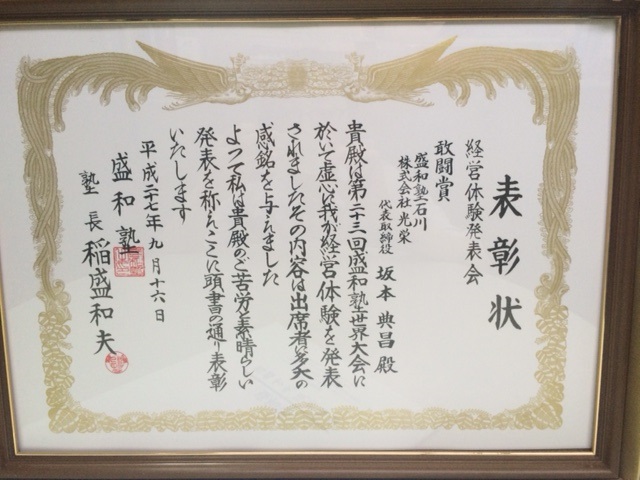 表彰状
経営体験発表会
敢闘賞
盛和塾石川
株式会社光栄
代表取締役 坂本典昌殿
貴殿は第二十三回盛和塾世界大会に
於いて虚心に我が経営体験を発表
されましたその内容は出席者に多大の
感銘を与えました
よって私は貴殿のご苦労と素晴らしい
発表を称えここに頭書の通り表彰
いたします
平成二十七年九月十六日
盛和塾
塾長 稲盛和夫